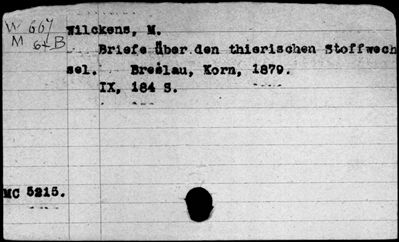 W 667 Wilckens, M.
M 64B
Briefe über den thierischen Stoffwech
sel. Breslau, Korn, 1879.
IX, 184 S.
MC 5215.